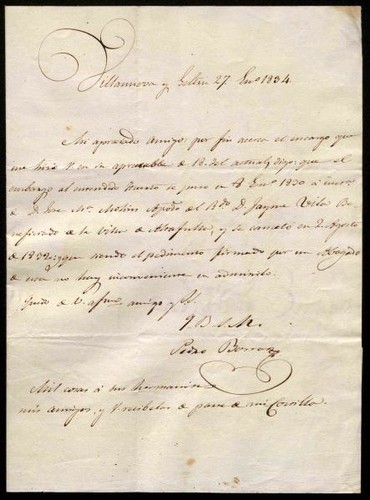 Villanueva y Geltru 27. En.º 1834.
Mi apreciado amigo: por fin acerca el encargo que
me hizo V. en su apreciable de 18. del actual, digo: que el
embargo al mencionado se puso en 8 En.º 1830 á
de D. Jose M.ª Molins Apod.º del R.do D. Jayme Vila Be-
neficiado de la Villa de Altafulla, y se canceló en 2. Agosto
de 1832; que siendo el pedimento firmado por un Abogado
de no hay inconveniente en admitirlo.
Quedo de V. af.mo amigo y S.
Q B S M.
Pedro
Mil cosas á sus hermanas
mis amigos, y V. recibalas de parte de mi